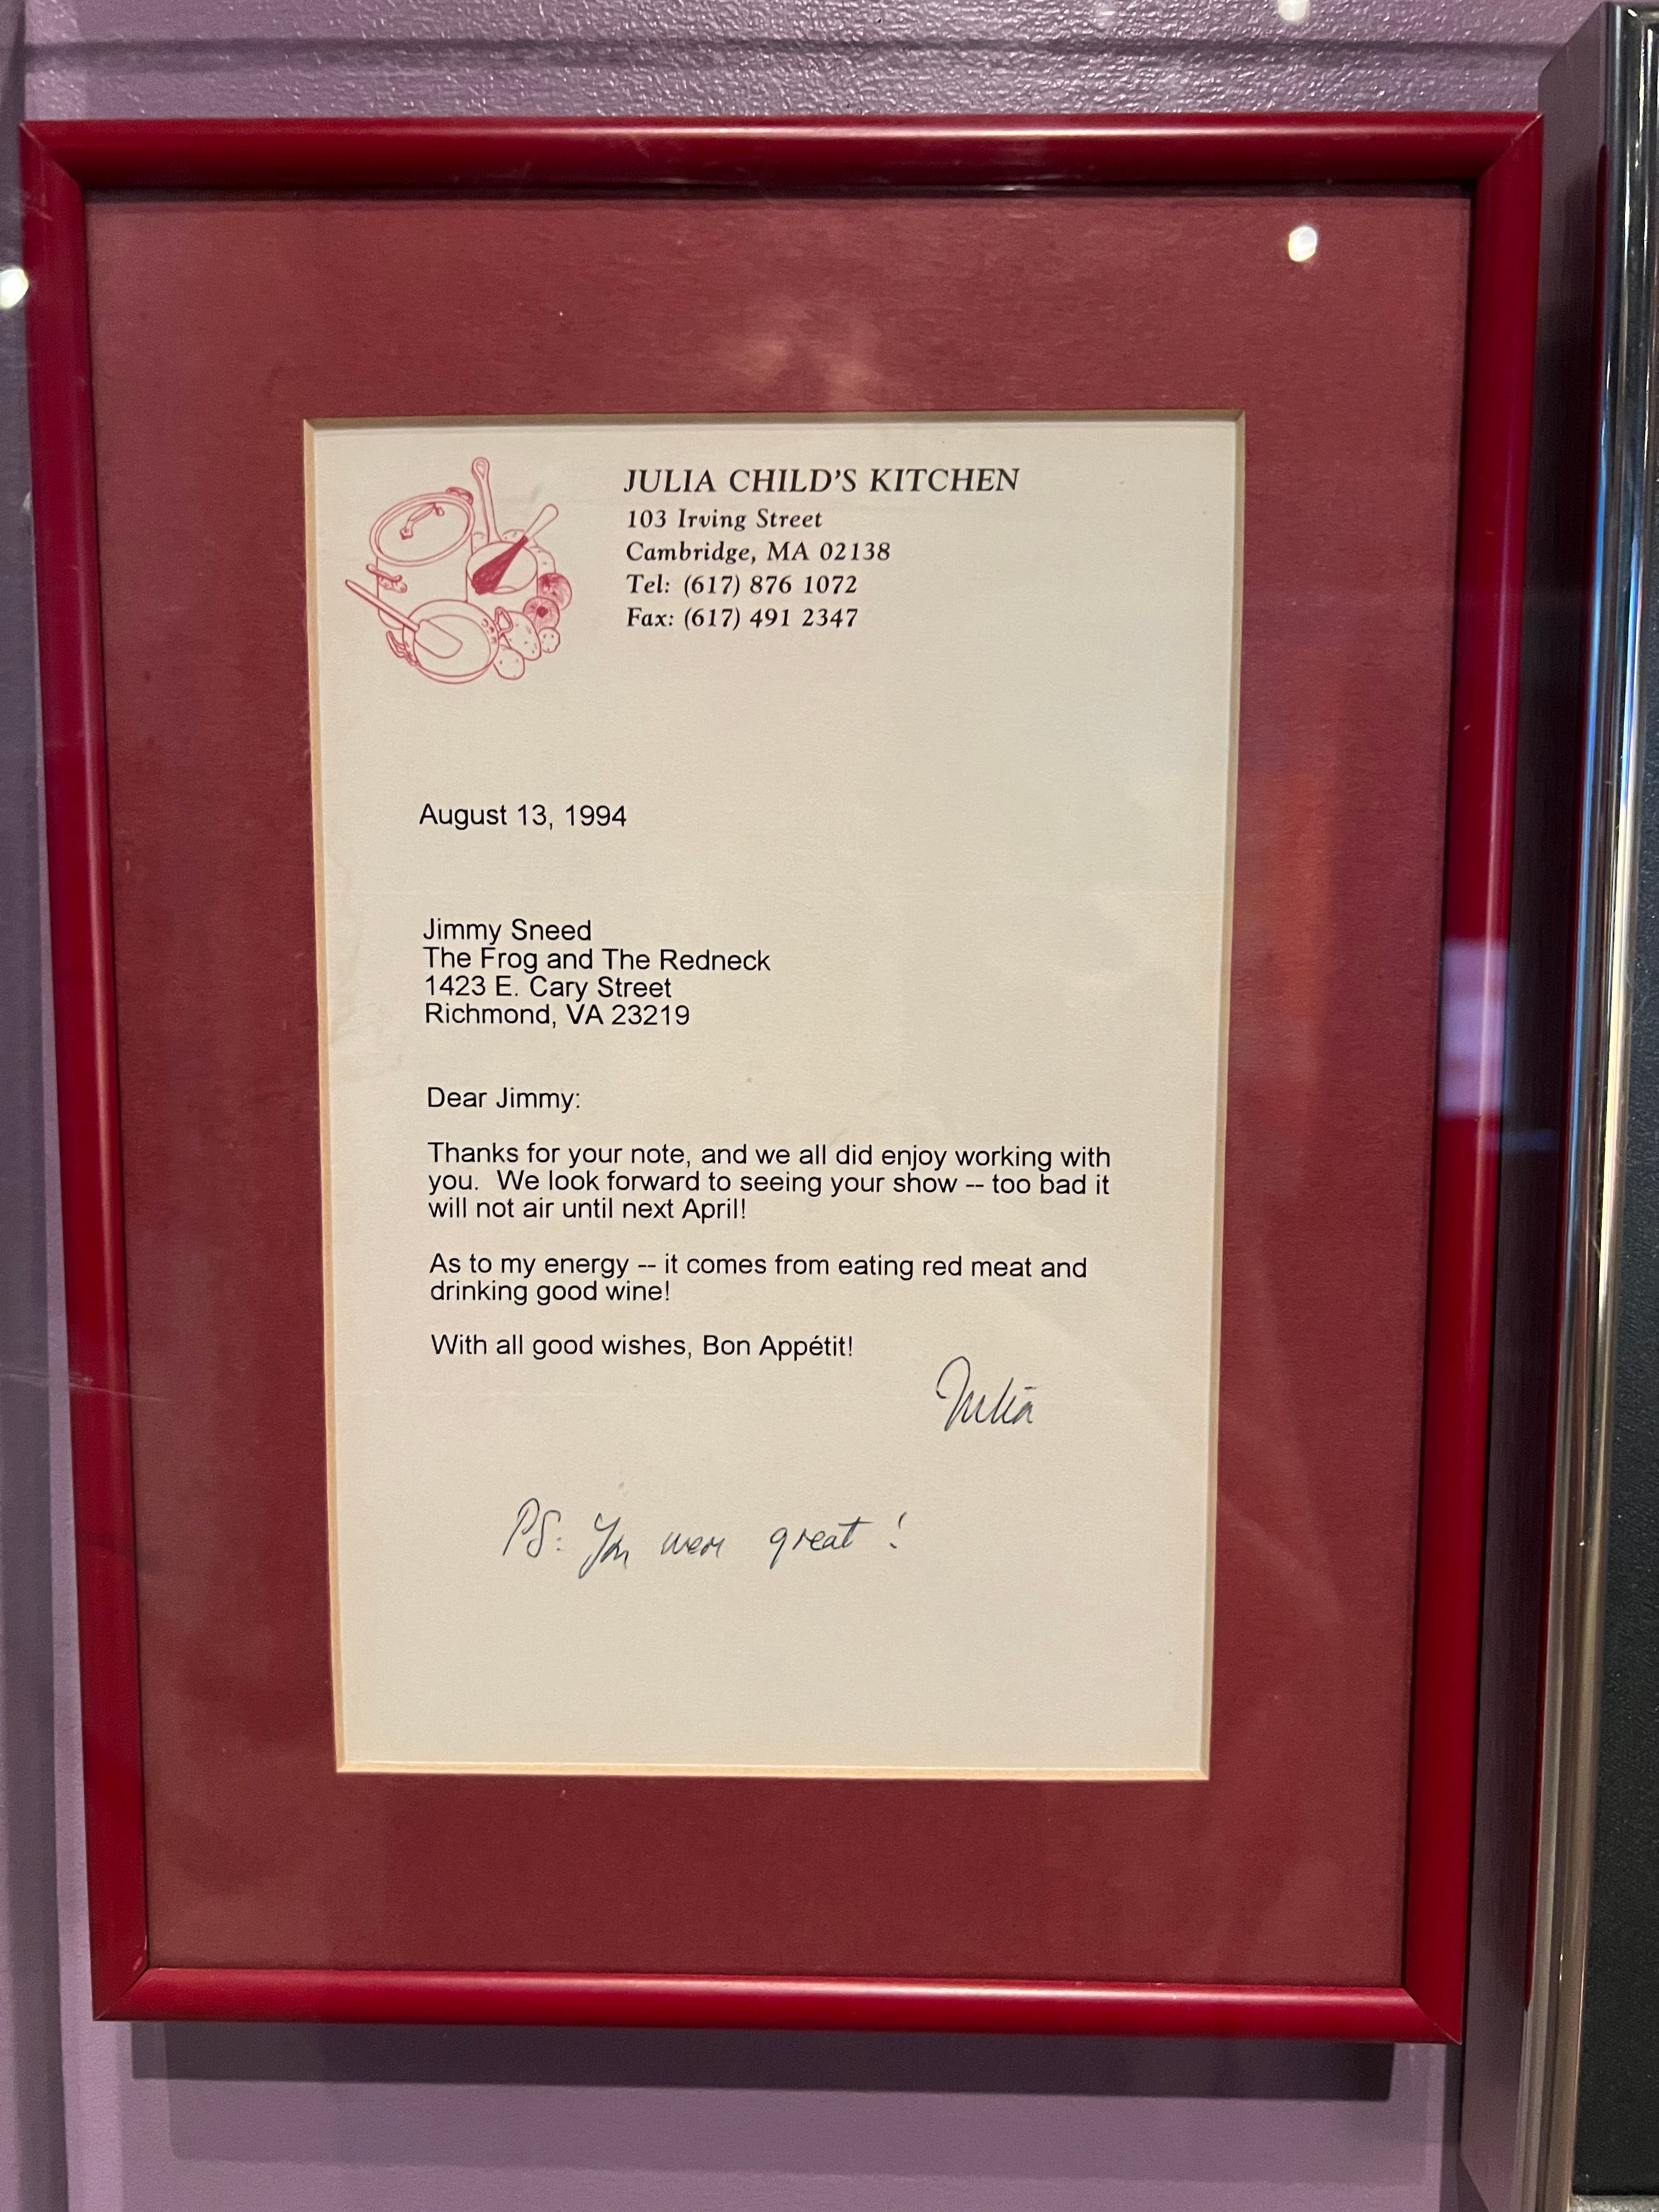 JULIA CHILD'S KITCHEN
103 Irving Street
Cambridge, MA 02138
Tel: (617) 876 1072
Fax: (617) 491 2347
August 13, 1994
Jimmy Sneed
The Frog and The Redneck
1423 E. Cary Street
Richmond, VA 23219
Dear Jimmy:
Thanks for your note, and we all did enjoy working with
you.  We look forward to seeing your show -- too bad it
will not air until next April!
As to my energy -- it comes from eating red meat and
drinking good wine!
With all good wishes, Bon Appétit!
Julia
PS: You were great!